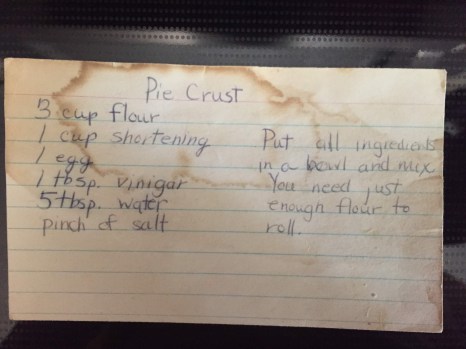 Pie Crust
3 cup flour
1 cup shortening
1 egg
1 tbsp. vinigar
5 tbsp. water
pinch of salt
Put all ingredients
in a bowl and mix
You need just
enough flour to
roll.